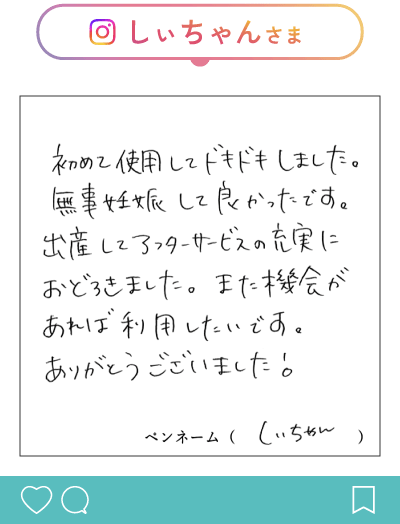 しぃちゃんさま
初めて使用してドキドキしました。
無事妊娠して良かったです。
出産してアフターサービスの充実に
おどろきました。また機会が
あれば利用したいです。
ありがとうございました!
ペンネーム ( しぃちゃん )